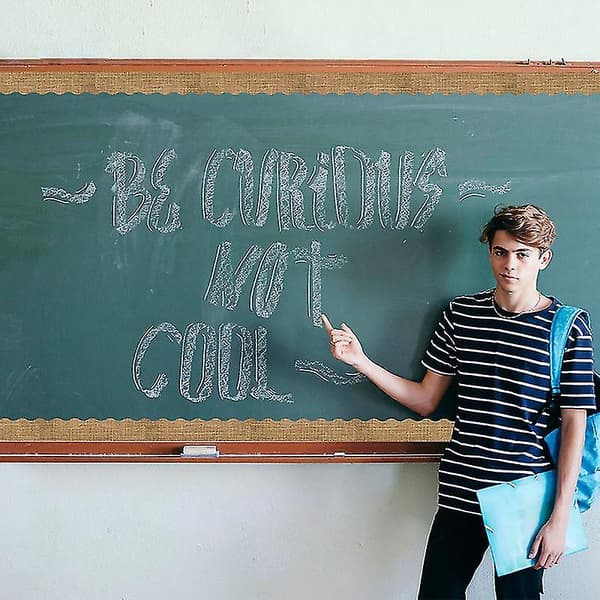 ~BE CURIOUS~
NOT
COOL~